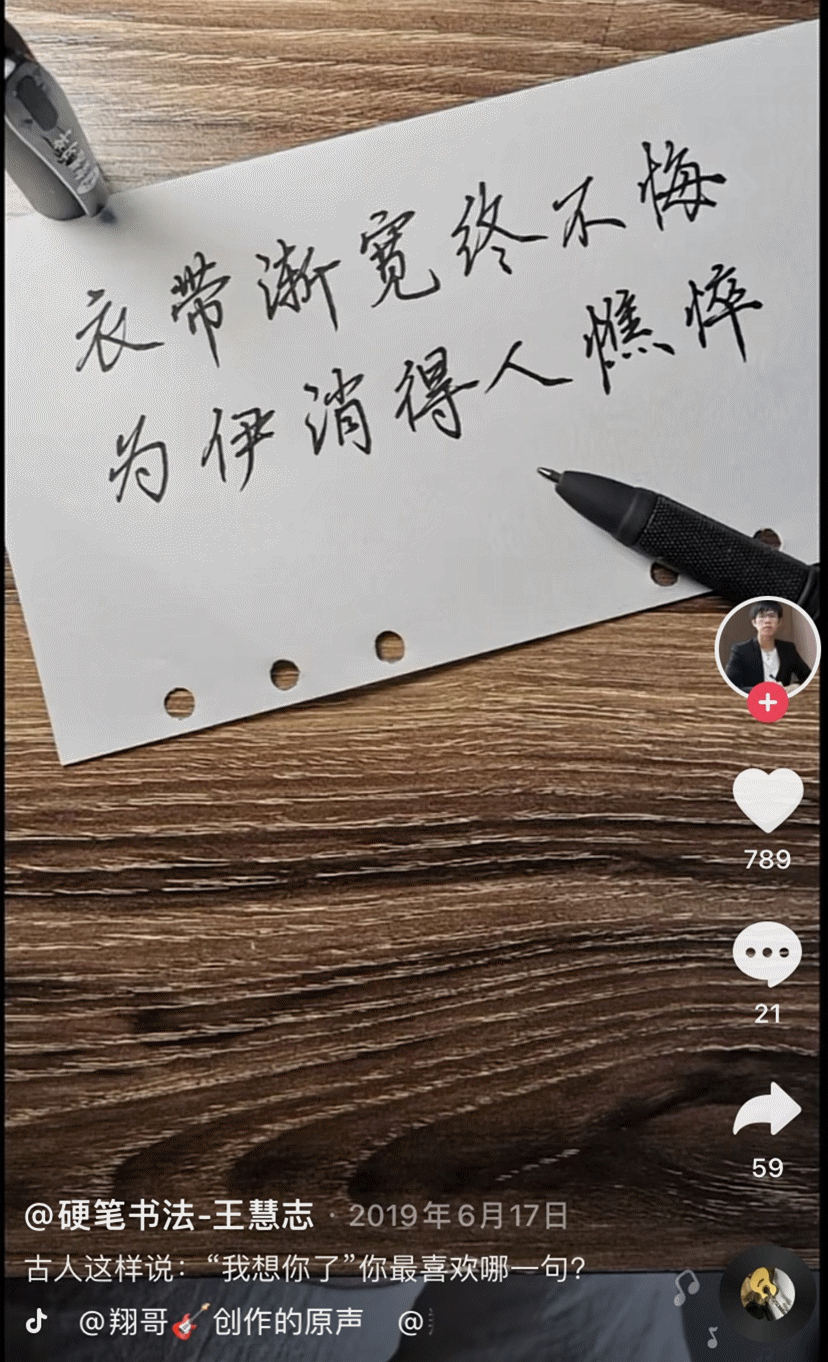 衣带渐宽终不悔
为伊消得人憔悴
789
21
59
@硬笔书法-王慧志 · 2019年6月17日
古人这样说：“我想你了”你最喜欢哪一句？
@翔哥🎸创作的原声 @